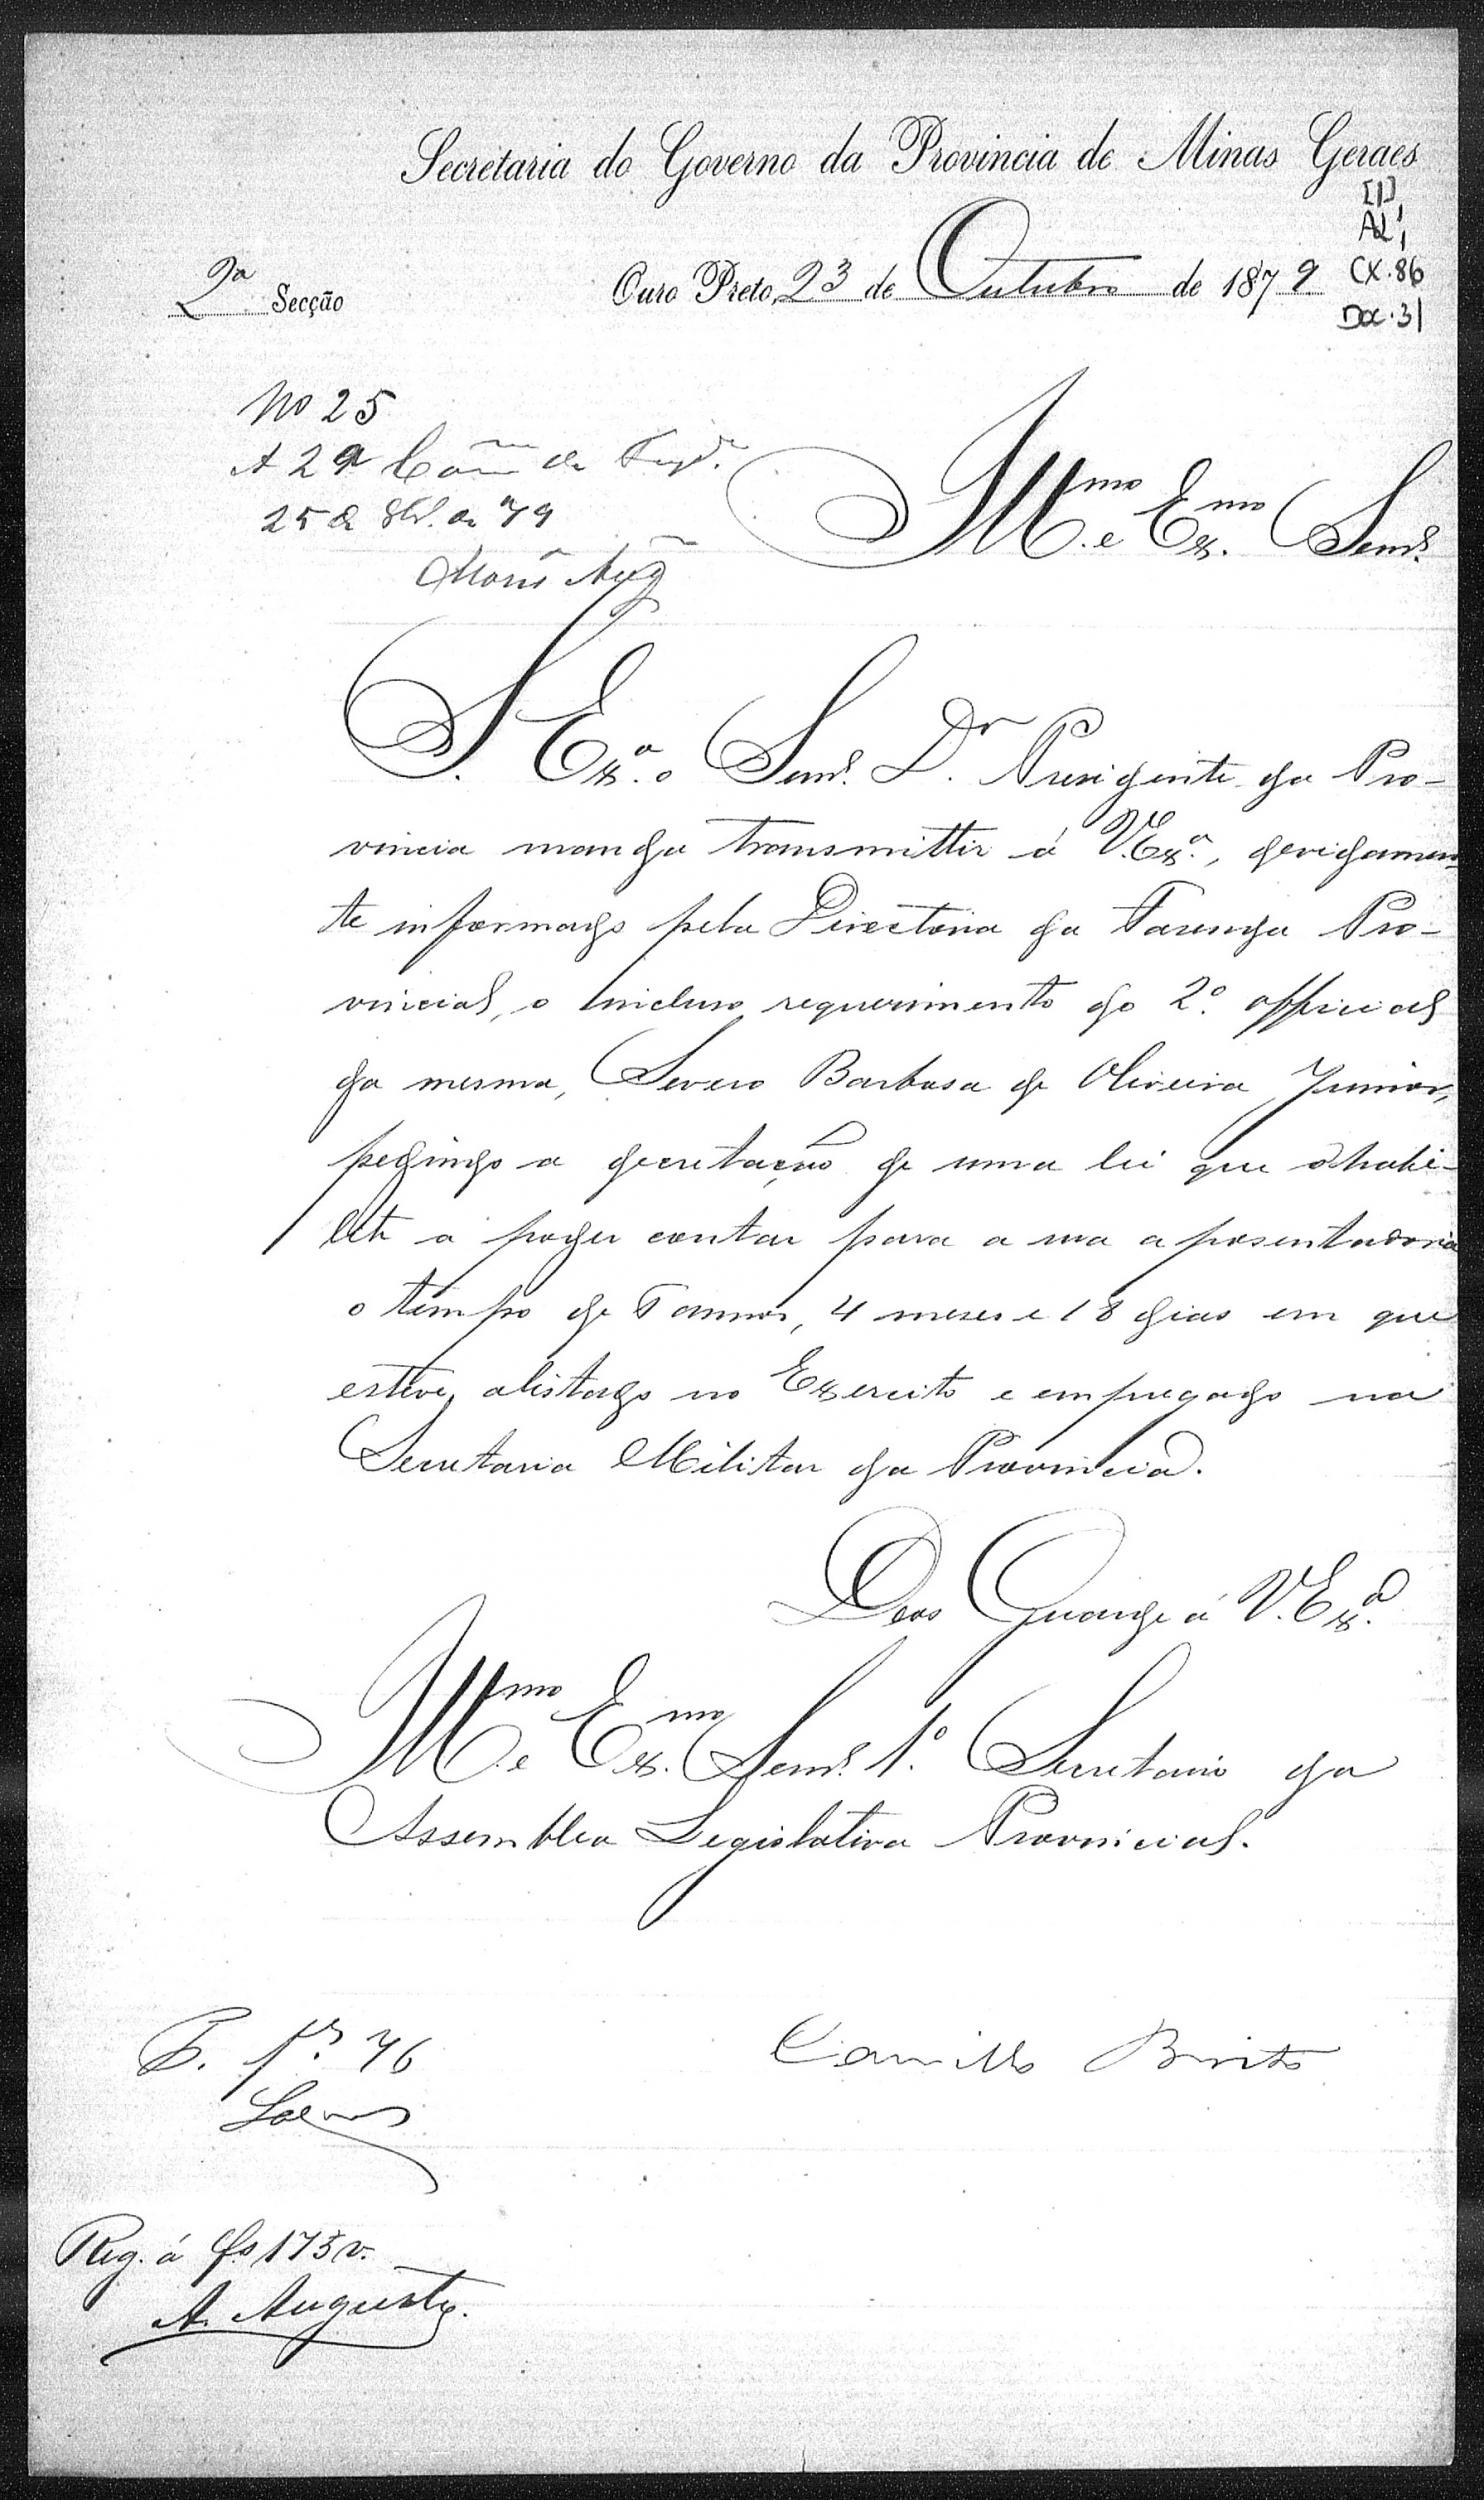 Secretaria do Governo da Provincia de Minas Geraes
[1]
AL1
CX.86
Doc.31
2ª Secção
Ouro Preto, 23 de Outubro de 1879
No 25
A 2ª Com de Fazª
25 de 8bro de 79
Illmo e Exmo Senr.
S. Exª o Senr. Dr. Presidente da Pro-
vincia manda transmittir á V. Exª, devidamen-
te informado pela Directoria da Fazenda Pro-
vincial, o incluso requerimento do 2º official
da mesma, Severo Barbosa de Oliveira Junior,
pedindo a decretação de uma lei que o habi-
lite a poder contar para a sua aposentadoria
o tempo de annos, 4 meses e 18 dias em que
esteve alistado no Exercito e empregado na
Secretaria Militar da Provincia.
Deos Guarde á V. Exª
Illmo e Exmo Senr. 1º Secretario da
Assemblea Legislativa Provincial.
Camillo Brito
76
Reg. á fs 173 v.
A. Augusto.